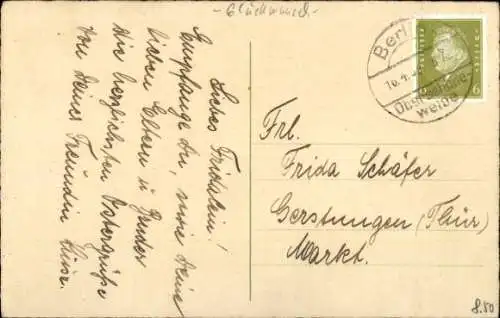 - Glückwunsch -
Liebes Fridalein!
Empfange Du, sowie Deine
lieben Eltern u. Bruder
die herzlichsten Ostergrüße
von Deiner Freundin Luise.
Berlin
Oberschöne-
weide
6 6
Frl.
Frida Schäfer
Gerstungen (Thür.)
Markt.
8.50